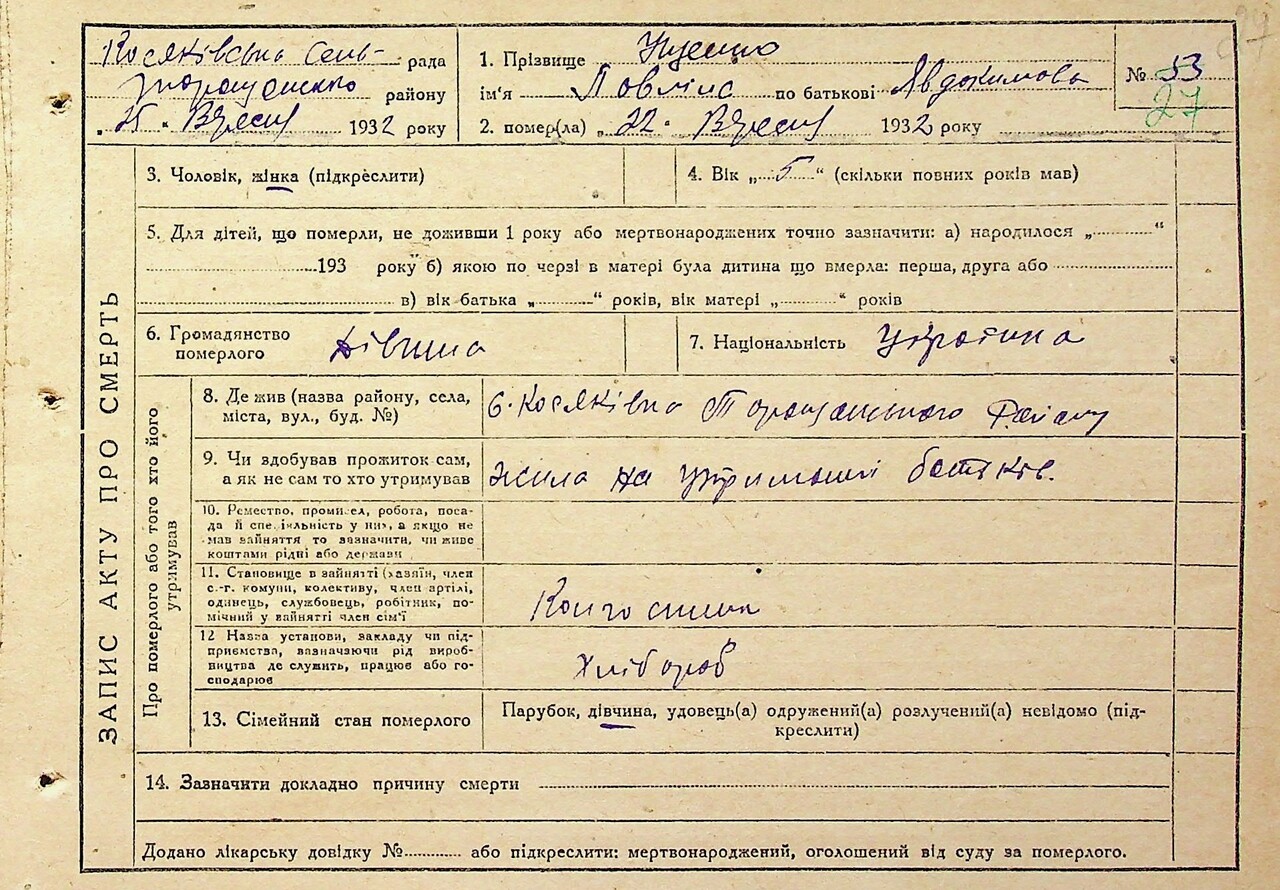 ЗАПИС АКТУ ПРО СМЕРТЬ
Косяківська Сель- рада
району
„25“ Вересня 1932 року
1. Прізвище
ім'я Повліна по батькові Явдокимова
2. помер(ла) „22“ Вересня 1932 року
№ 33
27
3. Чоловік, жінка (підкреслити)
4. Вік „5“ (скільки повних років мав)
5. Для дітей, що померли, не доживши 1 року або мертвонароджених точно зазначити: а) народилося „ “
193 року б) якою по черзі в матері була дитина що вмерла: перша, друга або
в) вік батька „ “ років, вік матері „ “ років
6. Громадянство
померлого дівчина
7. Національність Українка
Про померлого або того хто його
утримував
8. Де жив (назва району, села,
міста, вул., буд. №)
с. Косяківка Таращанського Району
9. Чи здобував прожиток сам,
а як не сам то хто утримував
жила на утриманні батьков.
10. Ремество, промисел, робота, поса-
да й спеціяльність у них, а якщо не
мав зайняття то зазначити, чи живе
коштами рідні або держави
11. Становище в зайнятті (хазяїн, член
с.-г. комуни, колективу, член артілі,
одинець, службовець, робітник, по-
мічний у зайнятті член сім'ї
12 Назва установи, закладу чи під-
приємства, зазначаючи рід вироб-
ництва де служить, працює або го-
сподарює
Хлібороб
13. Сімейний стан померлого
Парубок, дівчина, удовець(а) одружений(а) розлучений(а) невідомо (під-
креслити)
14. Зазначити докладно причину смерти
Додано лікарську довідку № або підкреслити: мертвонароджений, оголошений від суду за померлого.